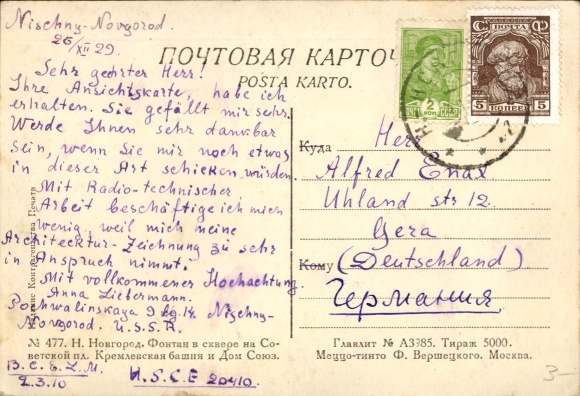 Nischny-Novgorod.
26/XII 29.
ПОЧТОВАЯ КАРТОЧ
POŜTA KARTO.
Sehr geehrter Herr!
Ihre Ansichtskarte, habe ich
erhalten. Sie gefällt mir sehr.
Werde Ihnen sehr dankbar
sein, wenn Sie mir noch etwas
in dieser Art schicken würden.
Mit Radio-technischer
Arbeit beschäftige ich mich
wenig, weil mich meine
Architecktur-Zeichnung zu sehr
in Anspruch nimmt.
Mit vollkommener Hochachtung
Anna Liebermann.
9 14 Nischny-
Novgorod. U.S.S.R.
№ 477. Н. Новгород. Фонтан в сквере на Со-
ветской пл. Кремлевская башня и Дом Союз.
2.3.10
U.S.C.E 20410
2
ПОЧТА
5 КОПЕЕК 5
Куда
Herr
Alfred Enax
Uhland str 12.
Gera
Кому
(Deutschland)
Германия.
Главлит № А3985. Тираж 5000.
Меццо-тинто Ф. Вершецкого. Москва.
3-